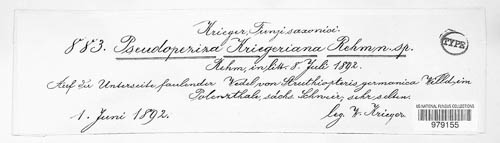 Krieger, Fungi saxonici.
883. Pseudopeziza Kriegeriana Rehm, n. sp.
TYPE
Rehm, in litt. 8. Juli 1892.
Auf der Unterseite faulender Wedel von Struthiopteris germanica Willd., im
Polenzthale, sächs. Schweiz, sehr selten.
1. Juni 1892. leg. W. Krieger.
US NATIONAL FUNGUS COLLECTIONS
979155